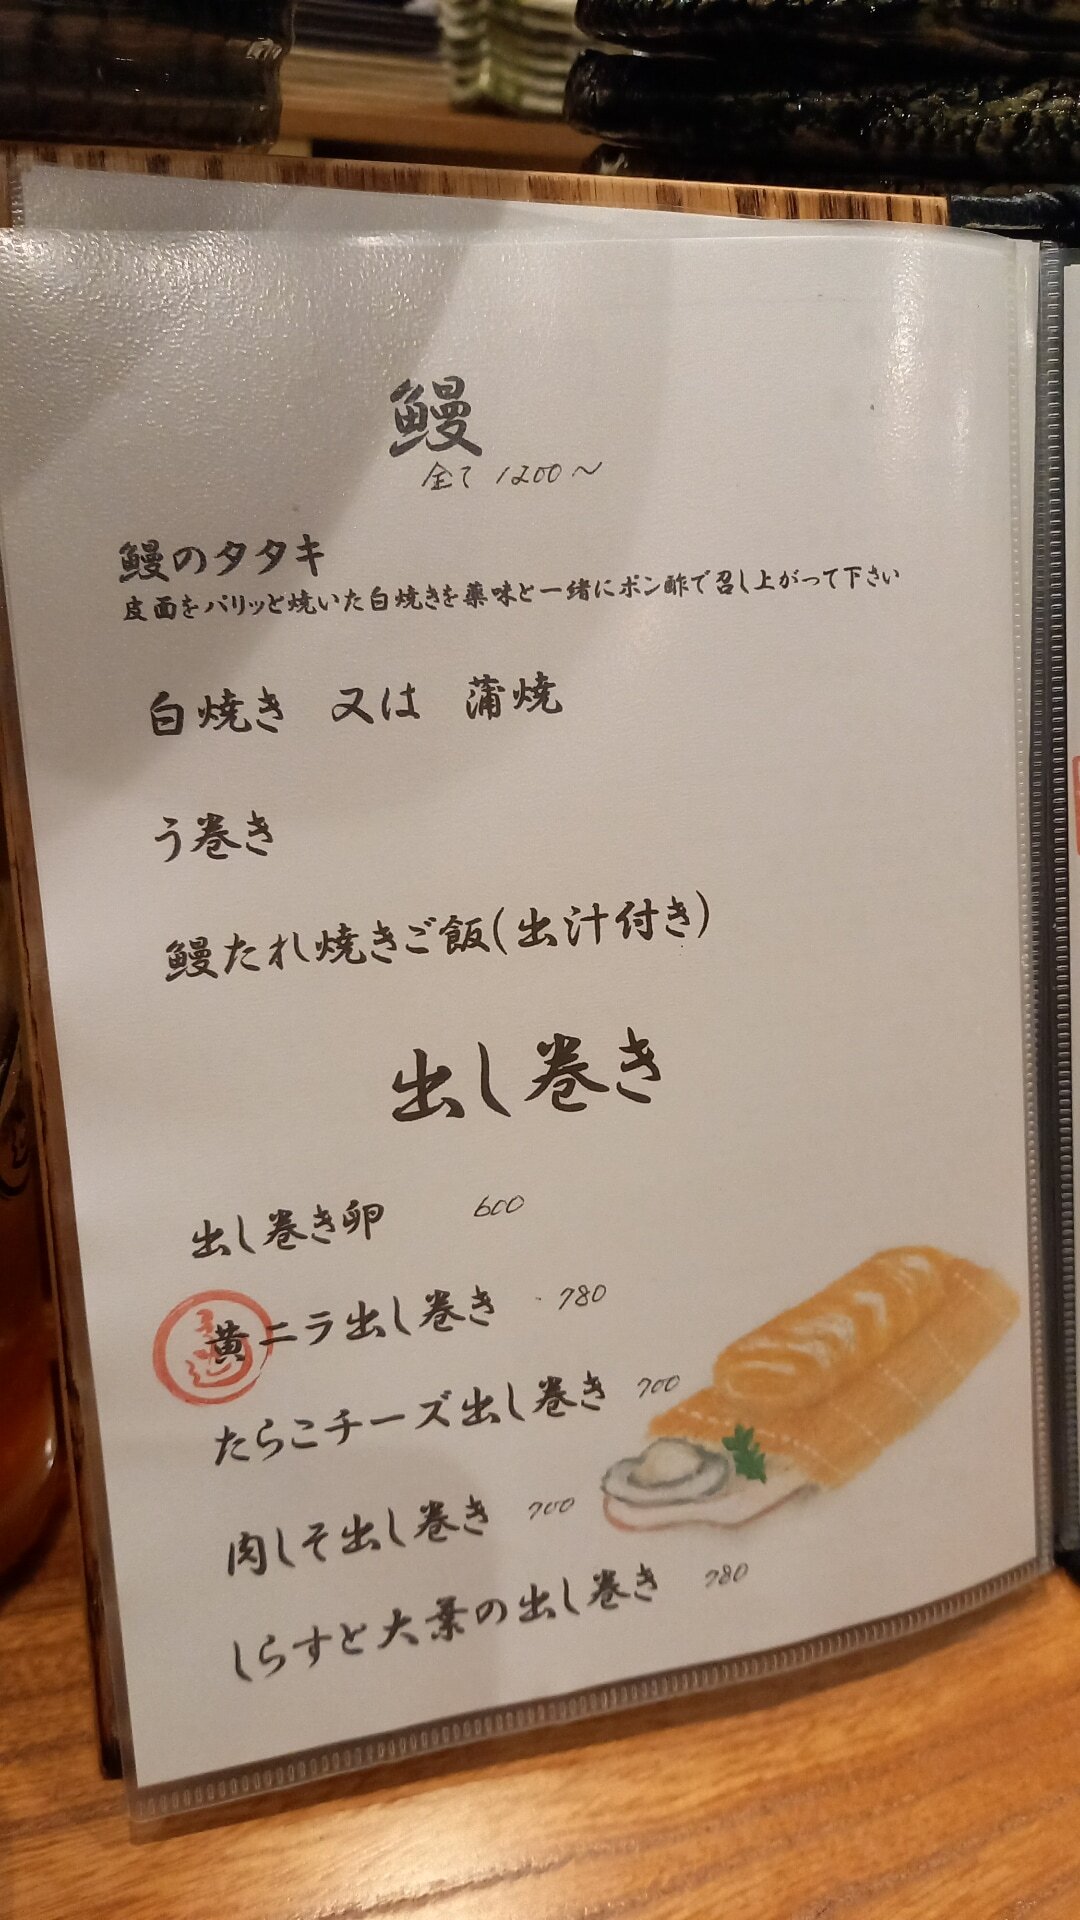 鰻
全て 1200〜
鰻のタタキ
皮面をパリッと焼いた白焼きを薬味と一緒にポン酢で召し上がって下さい
白焼き 又は 蒲焼
う巻き
鰻たれ焼きご飯(出汁付き)
出し巻き
出し巻き卵 600
黄ニラ出し巻き 780
たらこチーズ出し巻き 700
肉しそ出し巻き 700
しらすと大葉の出し巻き 780